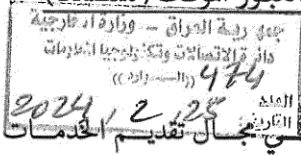 جمهورية العراق - وزارة الخارجية
دائرة الاتصالات وتكنولوجيا المعلومات
((الــــواردة))
العدد 474
التاريخ 2024 / 2 / 25
في مجال تقديم الخدمات